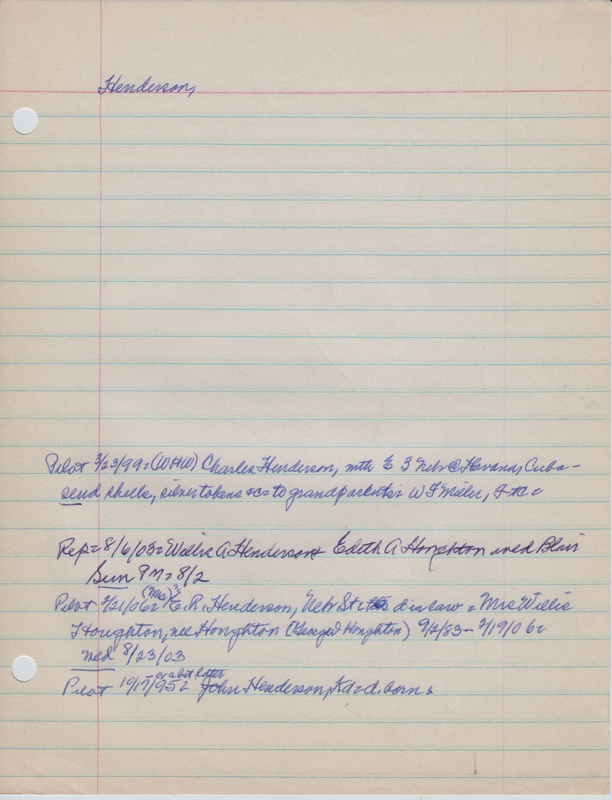 Henderson,
Pilot 3/23/99 = (WHW) Charles Henderson, mtr E 3 Nebr @ Havana, Cuba -
send shells, silver tokens &c = to grandparents = W F Miller,
Rep = 8/6/03 = Willis A Henderson + Edith A Houghton wed Blair
Sun PM = 8/2
Pilot 2/21/06 = (Mrs) E. R. Henderson, Nebr St d in law = Mrs Willis
Houghton, nee Houghton (George Houghton) 9/2/83 - 2/19/06 =
wed 8/23/03
or abt later
Pilot John Henderson, Kd = d. born =